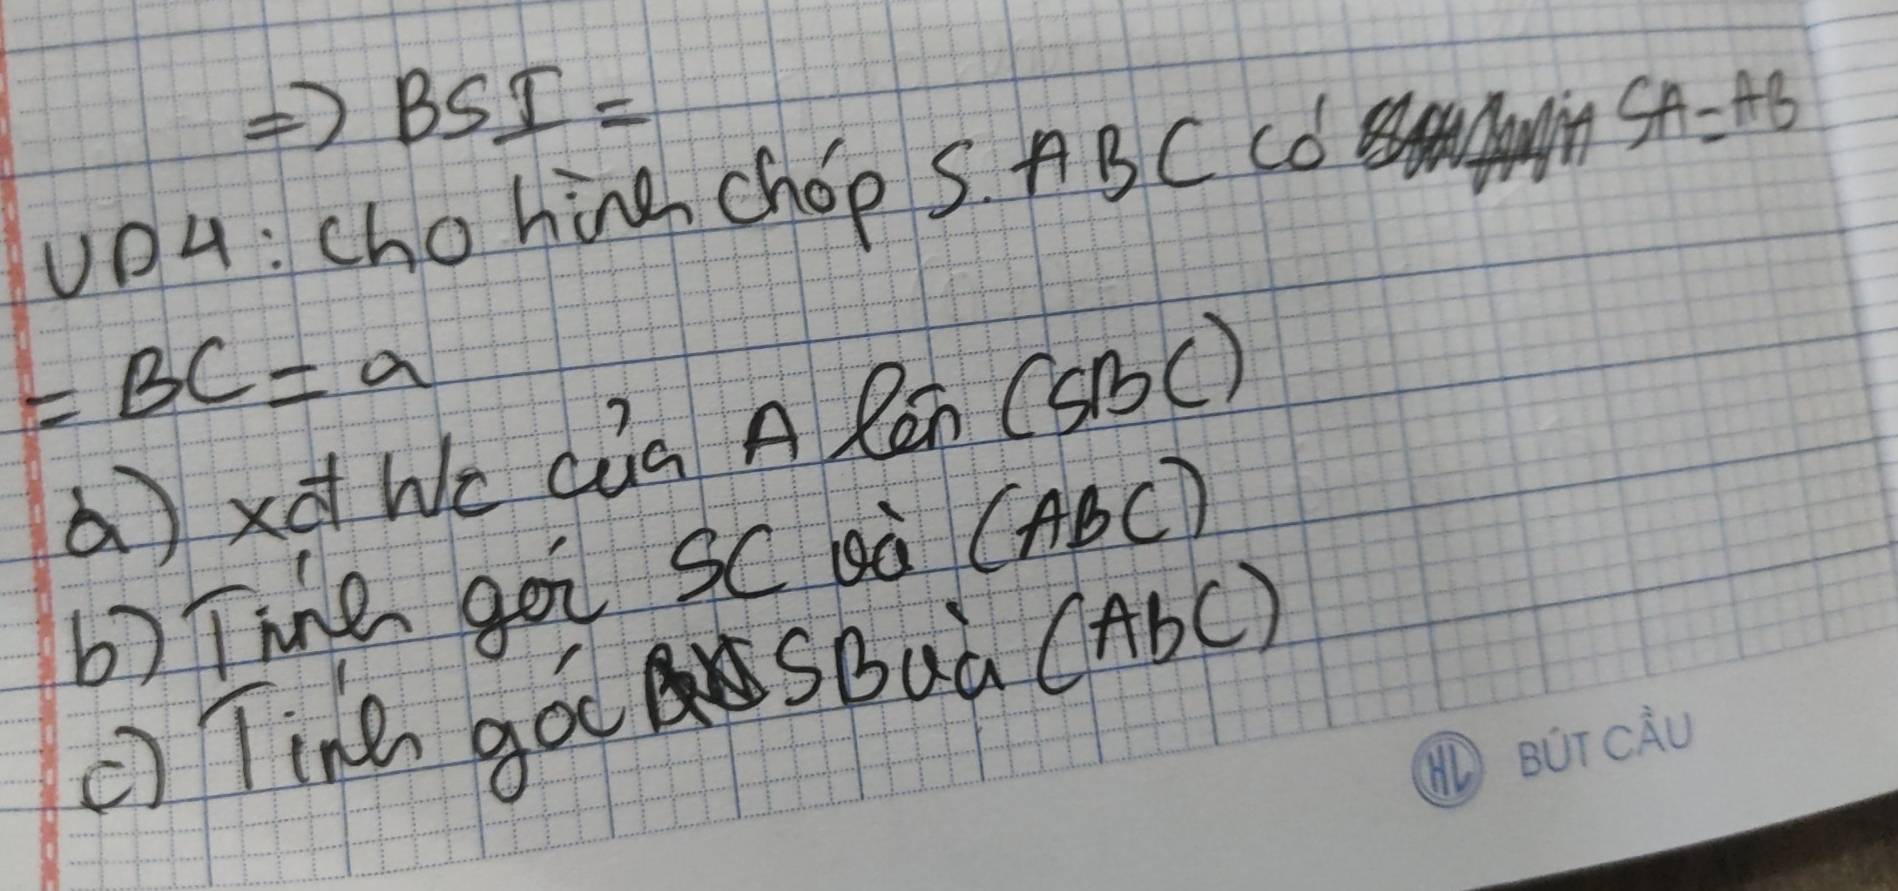 =) BSI =
VD4: Cho hình chóp S.ABC có SA=AB
= BC = a
a) xđ h/c của A lên (SBC)
b) Tính gói SC và (ABC)
c) Tính góc SB và (AbC)
HL BÚT CẦU